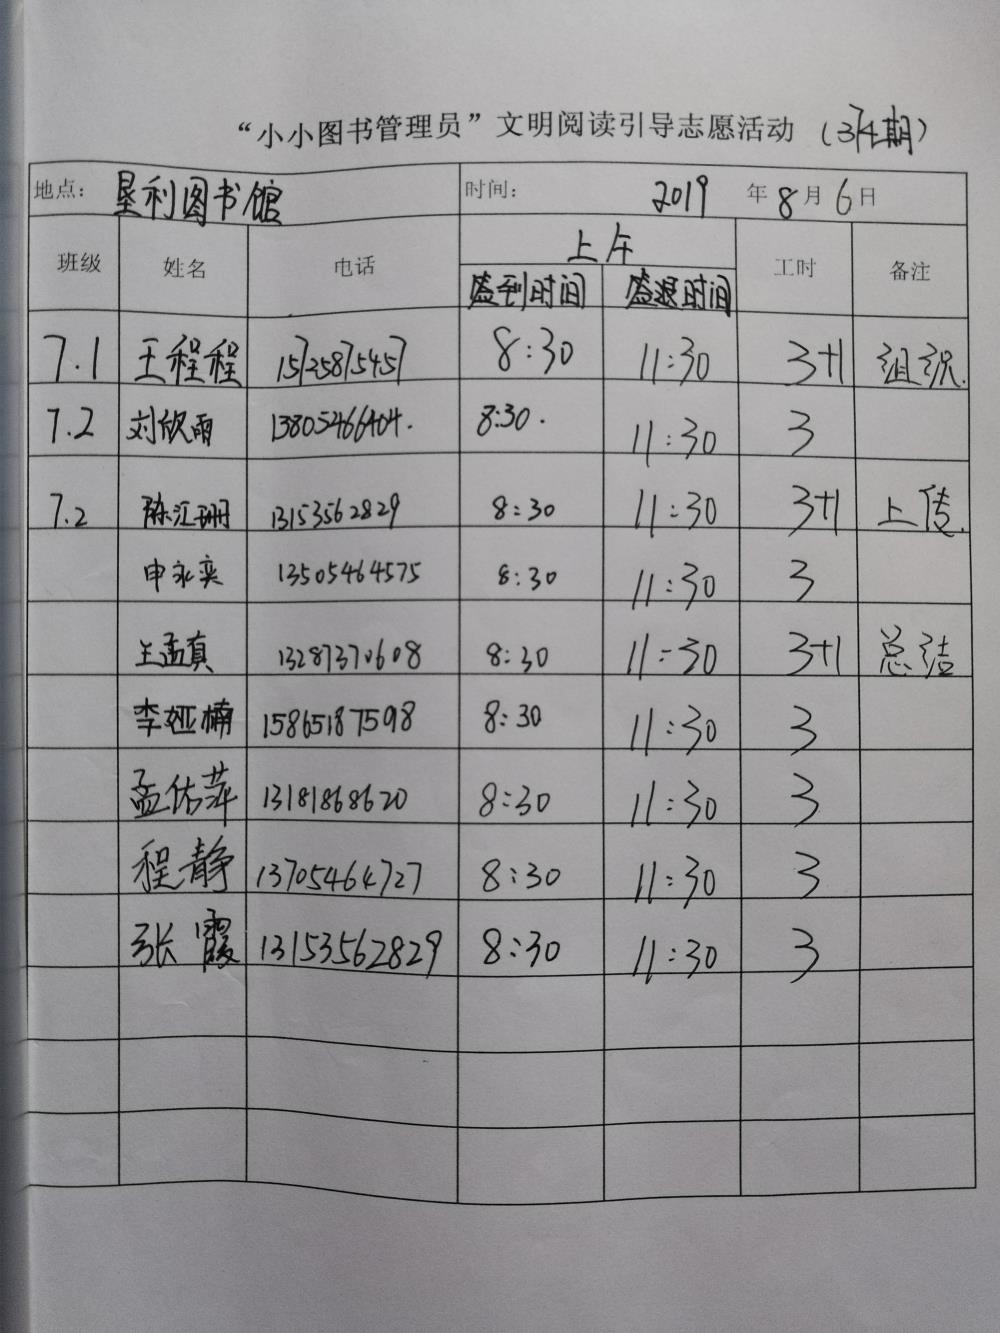 “小小图书管理员”文明阅读引导志愿活动（374期）
地点： 垦利图书馆 时间： 2019 年 8 月 6 日
班级 姓名 电话 上午 工时 备注
签到时间 签退时间
7.1 王程程 15725875457 8:30 11:30 3+1 组织.
7.2 刘欣雨 13805466404. 8:30. 11:30 3
7.2 陈江珊 13153562829 8:30 11:30 3+1 上传.
申永奕 13505464575 8:30 11:30 3
王孟真 13287370608 8:30 11:30 3+1 总结
李娅楠 15865187598 8:30 11:30 3
孟佑萍 13181868620 8:30 11:30 3
程静 13705464727 8:30 11:30 3
张霞 13153562829 8:30 11:30 3